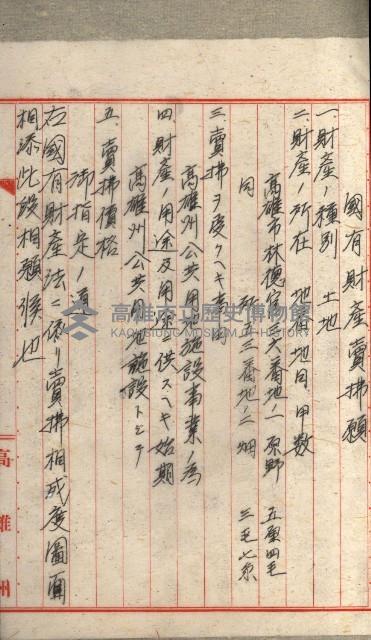 國有財產賣拂願
一、財產ノ種別 土地
二、財產ノ所在 地番地目、甲數
高雄市林德官 六番地ノ一 原野 五厘四毛
同 所 三番地ノ二 畑 三毛七糸
三、賣拂ヲ受クヘキ事由
高雄州公共用地施設事業ノ為
四、財產ノ用途及用途ニ供スヘキ始期
高雄州公共用地施設トシテ
五、賣拂價格
御指定ノ通
右國有財產法ニ依リ賣拂相成度圖面
相添此段相願候也
高雄州
高雄市立歷史博物館
KAOHSIUNG MUSEUM OF HISTORY